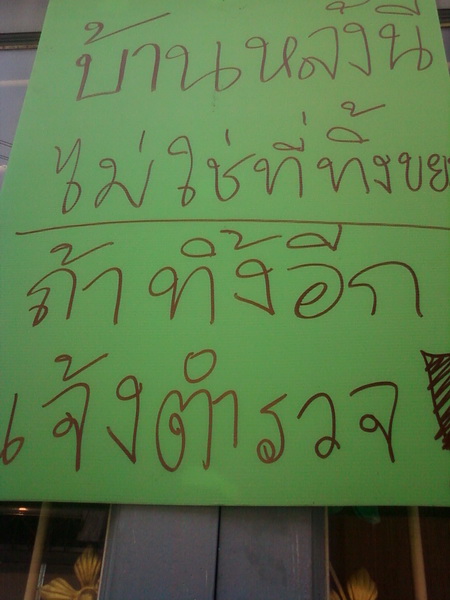 บ้านหลังนี้
ไม่ใช่ที่ทิ้งขย
ถ้าทิ้งอีก
แจ้งตำรวจ